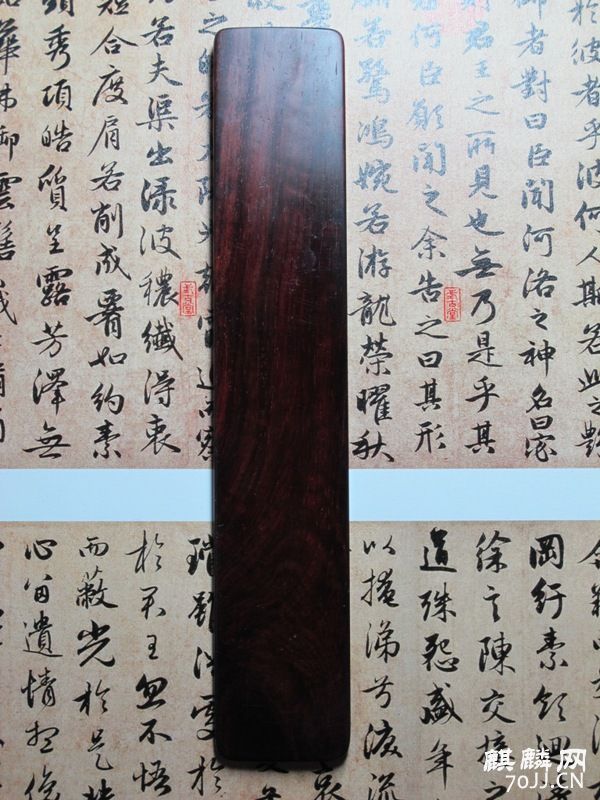 於彼者乎彼何人斯若此之艷
御者對曰臣聞河洛之神名曰宓
君王之所見也無乃是乎其
何臣願聞之余告之曰其形
若驚鴻婉若游龍榮曜秋
若夫渠出淥波穠纖得衷
短合度肩若削成腰如約素
秀項皓質呈露芳澤無
華弗御雲髻
岡紆素領迴
徐言陳交接
道殊怨盛年
以掩涕兮淚流
璫雖潛處於
於君王忽不悟
而蔽光於是
心留遺情想像
麒麟网
70JJ.CN